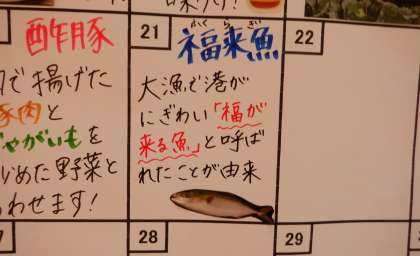 酢豚
で揚げた
豚肉と
じゃがいもを
炒めた野菜と
あわせます!
21
ふくらぎ
福来魚
大漁で港が
にぎわい「福が
来る魚」と呼ば
れたことが由来
22
28
29